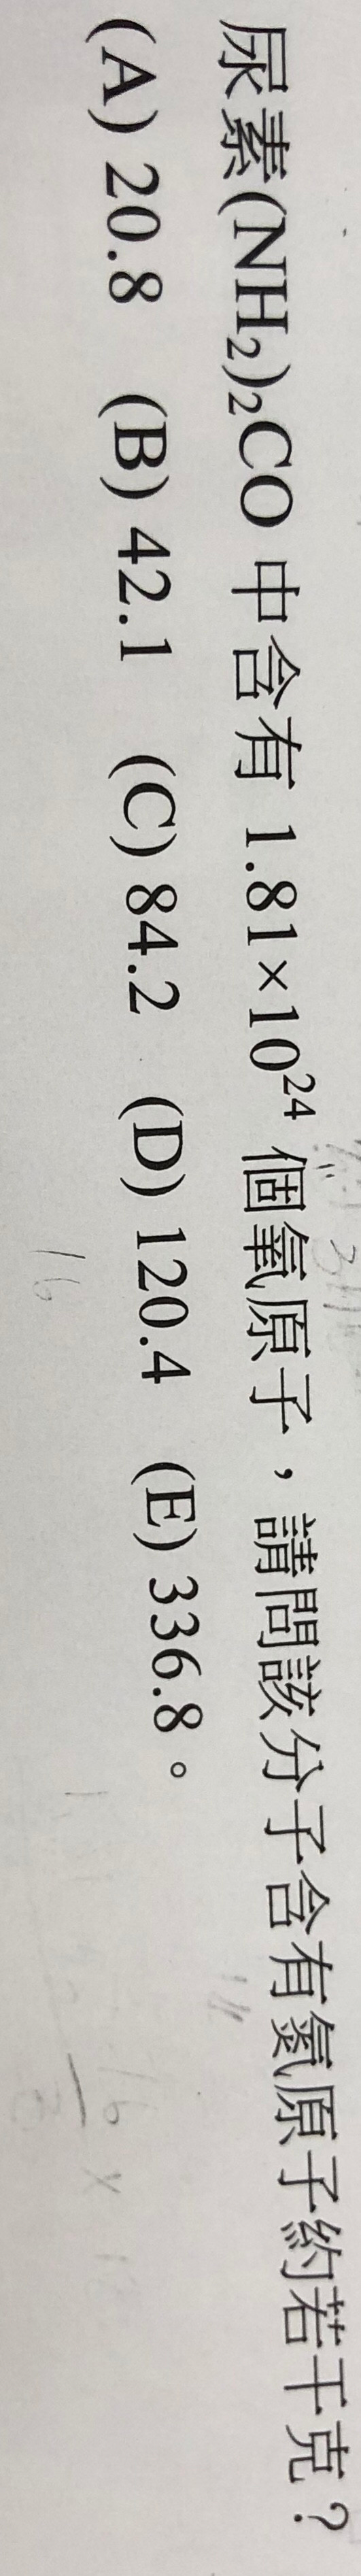 尿素(NH₂)₂CO 中含有 1.81×10²⁴ 個氧原子，請問該分子含有氮原子約若干克？
(A) 20.8 (B) 42.1 (C) 84.2 (D) 120.4 (E) 336.8。
16